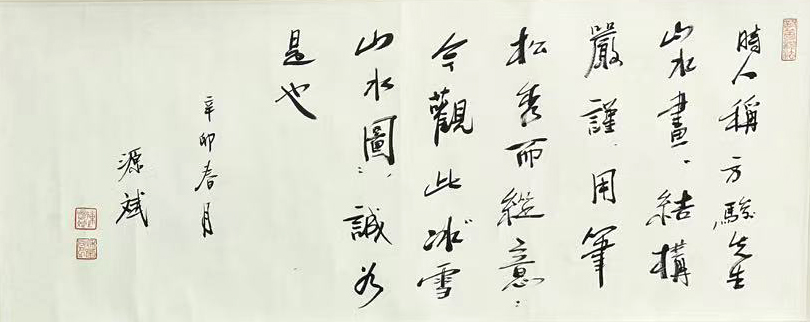 時人稱方駿先生
山水畫，結構
嚴謹，用筆
松秀而縱意，
今觀此冰雪
山水圖，誠為
是也
辛卯春月
源斌